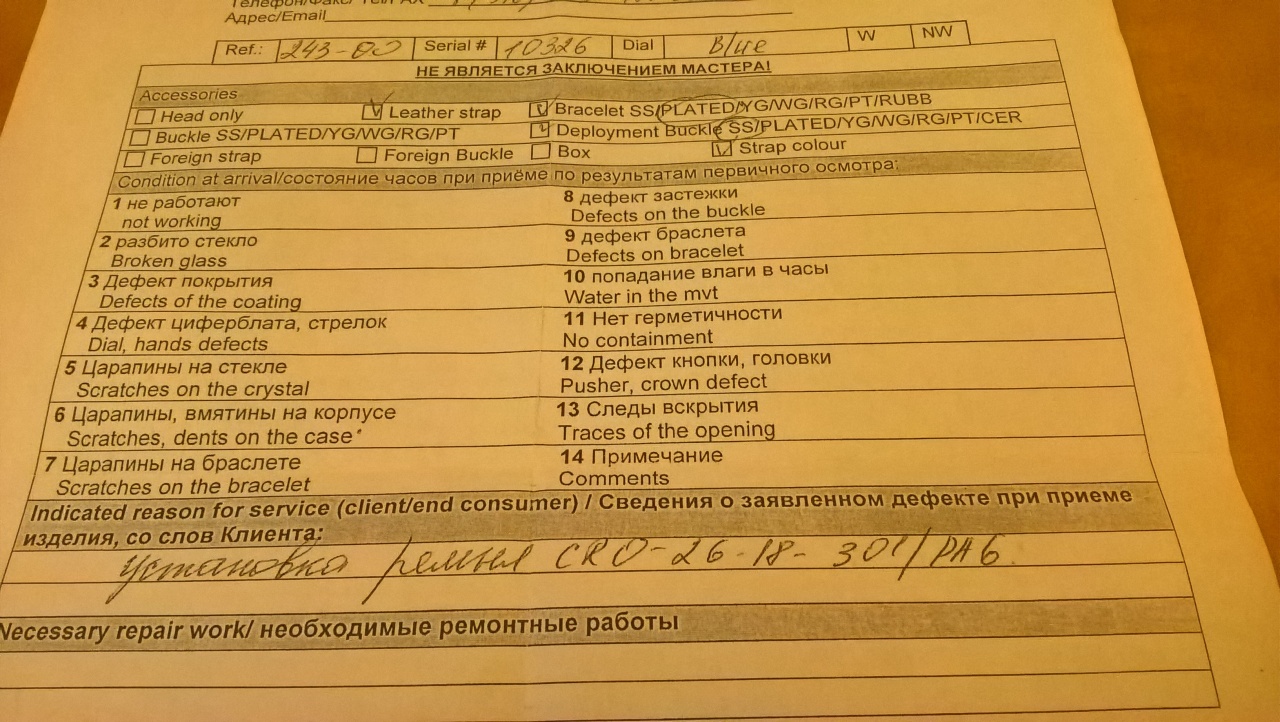 Адрес/Email
Ref.: 243-00 Serial # 10326 Dial Blue W NW
НЕ ЯВЛЯЕТСЯ ЗАКЛЮЧЕНИЕМ МАСТЕРА!
Accessories
Head only Leather strap Bracelet SS/PLATED/YG/WG/RG/PT/RUBB
Buckle SS/PLATED/YG/WG/RG/PT Deployment Buckle SS/PLATED/YG/WG/RG/PT/CER
Foreign strap Foreign Buckle Box Strap colour
Condition at arrival/состояние часов при приёме по результатам первичного осмотра:
1 не работают
not working
8 дефект застежки
Defects on the buckle
2 разбито стекло
Broken glass
9 дефект браслета
Defects on bracelet
3 Дефект покрытия
Defects of the coating
10 попадание влаги в часы
Water in the mvt
4 Дефект циферблата, стрелок
Dial, hands defects
11 Нет герметичности
No containment
5 Царапины на стекле
Scratches on the crystal
12 Дефект кнопки, головки
Pusher, crown defect
6 Царапины, вмятины на корпусе
Scratches, dents on the case
13 Следы вскрытия
Traces of the opening
7 Царапины на браслете
Scratches on the bracelet
14 Примечание
Comments
Indicated reason for service (client/end consumer) / Сведения о заявленном дефекте при приеме
изделия, со слов Клиента:
Установка ремня CRO-26-18-301/PA6
Necessary repair work/ необходимые ремонтные работы